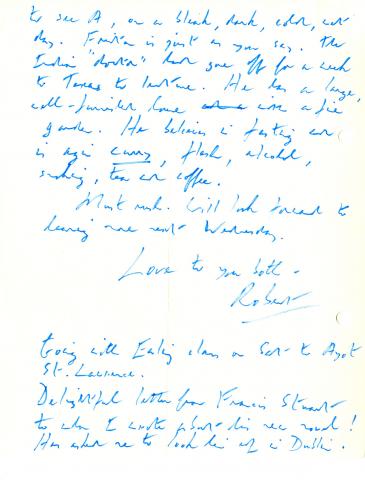 to see A, on a bleak, dark, cold, wet
day. Friston is just as you say. The
Indian "doctor" had gone off for a week
to Texas to lecture. He has a large,
well-furnished house with a fine
garden. He believes in fasting and
is again curry, flesh, alcohol,
smoking, tea and coffee.
Must rush. Will look forward to
hearing more next Wednesday.
Love to you both -
Robert
Going with Ealing class on Sat to Ayot
St. Lawrence.
Delightful letter from Francis Stuart
to whom I wrote about his new novel!
Has asked me to look him up in Dublin.